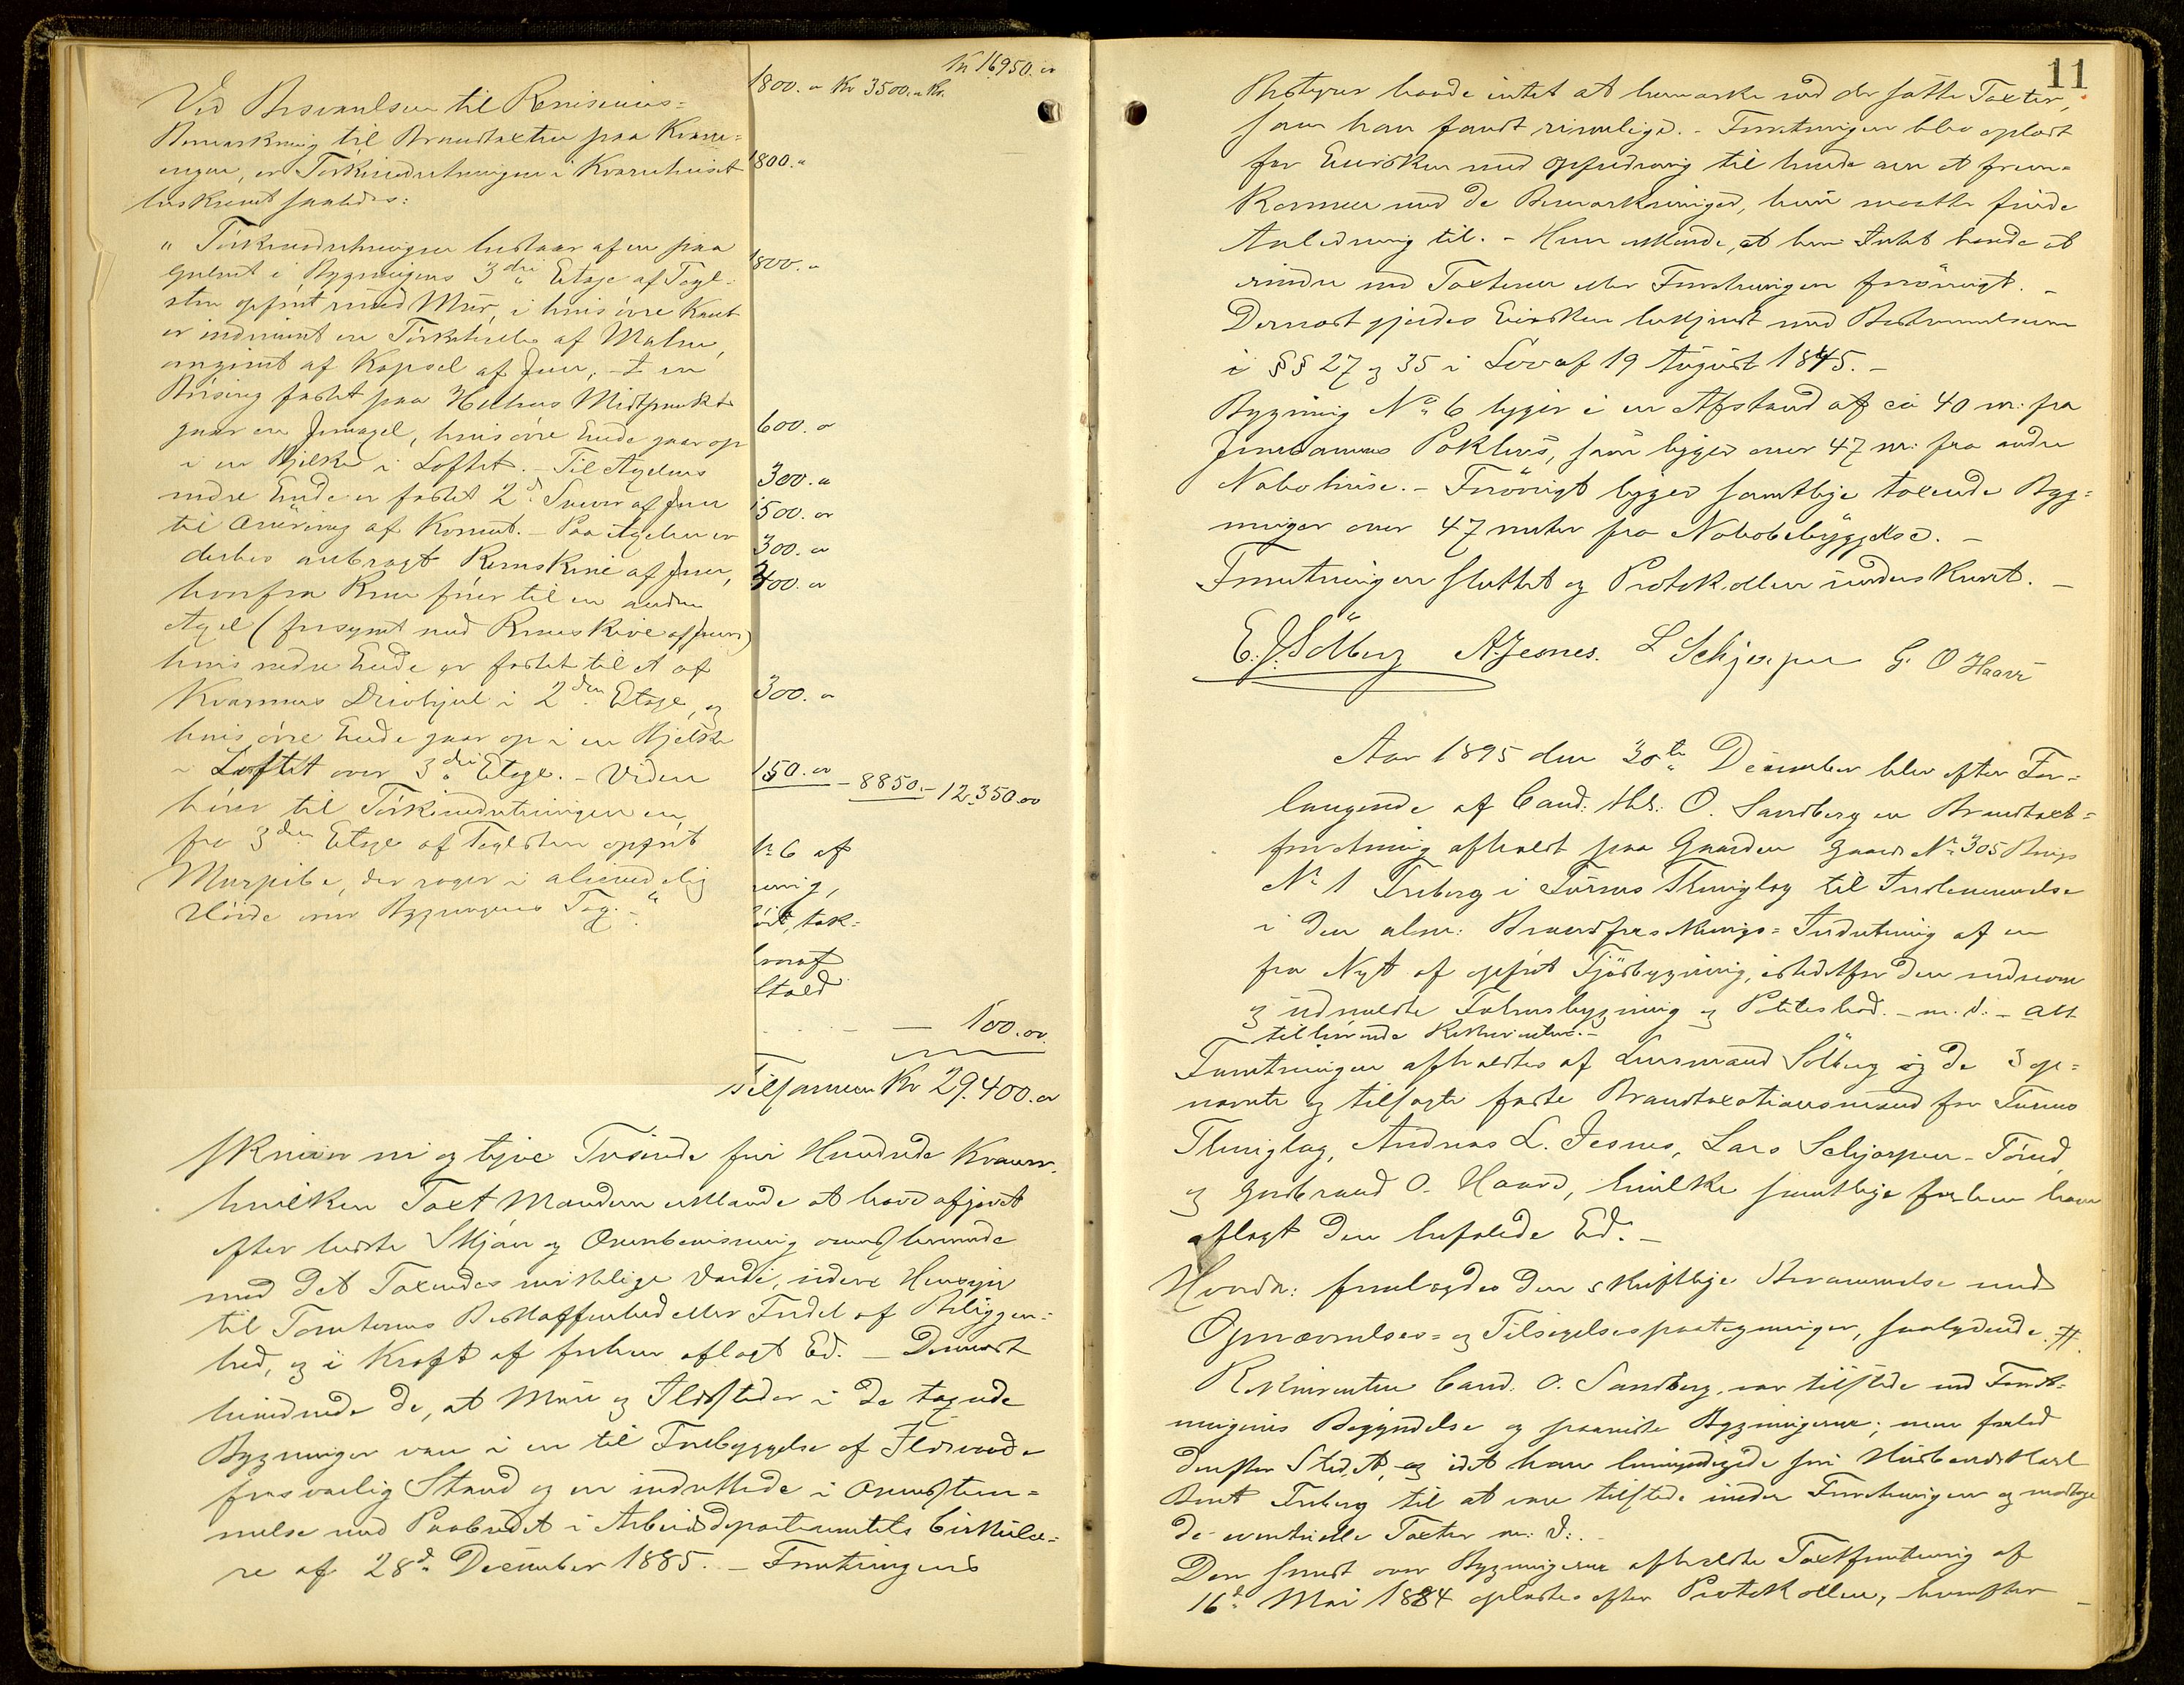 Ved Besvarelsen til Revisions-
Bemærkning til Brandtaxten paa Kværn-
engen, er Tørkeindretningen i Kværnhuset
beskrevet saaledes:
" Tørkeindretningen bestaar af en paa
Gulvet i Bygningens 3die Etage af Tegl-
sten opført rund Mur, i hvis øvre Kant
er indmuret en Tørkehelle af Malm,
omgivet af Kapsel af Jern, - I en
Bøsing fæstet paa Hellens Midtpunkt
gaar en Jernaxel, hvis øvre Ende gaar op
i en Bjelke i Loftet. - Til Axelens
nedre Ende er fæstet 2de Sveiv af Jern
til Omrøring af Kornet. - Paa Axelen er
derhos anbragt Remskive af Jern,
hvorfra Rem fører til en anden
Axel (forsynet med Remskive af Jern)
hvis nedre Ende er fæstet til et af
Kværnens Drivhjul i 2den Etage, og
hvis øvre Ende gaar op i en Bjelke
i Loftet over 3die Etage. - Videre
hører til Tørkeindretningen en,
fra 3die Etage af Teglsten opført
Murpibe, der rager i alminnelig
Høide over Bygningens Tag. - "
Kr 16950. "
1800. " Kr 3500. " Kr.
1800. "
1800. "
600. "
300. "
1500. "
300. "
400. "
300. "
150. " - 8850. - 12,350.00
No 6 af
ning,
ørt, tæk-
hvoraf
Stald
- 100. "
Tilsammen Kr 29,400. "
skriver ni og tyve Tusinde fire Hundrede Kroner.
hvilken Taxt Mændene erklærede at have afgivet
efter bedste Skjøn og Overbevisning overensstemmende
med det Taxeredes virkelige Værdi, uden Hensyn
til Tomternes Beskaffenhed eller Fordel af Beliggen-
hed, og i Kraft af forhen aflagt Ed. - Dernæst
bemærkede de, at Mure og Ildsteder i de taxerede
Bygninger vare i en til Forebyggelse af Ildsvaade
forsvarlig Stand og er indrettede i Overensstem-
melse med Paabudet i Arbeidsdepartementets Cirkulæ-
re af 28de December 1885. - Forretningens
11
Bestyrer havde intet at bemærke ved de satte Taxter,
som han fandt rimelige. - Forretningen blev oplæst
for Enersken med Opfordring til hende om at frem-
komme med de Bemærkninger, hun maatte finde
Anledning til. - Hun erklærede, at hun Intet havde at
erindre ved Taxterne eller Forretningen forøvrigt. -
Dernæst gjordes Eiersken bekjendt med Bestemmelserne
i §§ 27 og 35 i Lov af 19 August 1845. -
Bygning No 6 ligger i en Afstand af ca 40 m. fra
Jernbanens Pakhus, som ligger over 47 m. fra andre
Nabohuse. - Forøvrigt ligger samtlige taxerede Byg-
ninger over 47 meter fra Nabobebyggelse. -
Forretningen sluttet og Protokollen underskrevet. -
E. J. Sölberg A Jesnes. L Schjerpen G. O Haarr
Aar 1895 den 30te December blev efter For-
langende af Cand. theol. O. Sandberg en Brandtaxt-
forretning afholdt paa Gaarden Gaards No 305 Brugs
No 1 Friberg i Furnes Thinglag til Indlemmelse
i den alm. Brandforsikrings-Indretning af en
fra Nyt af opført Fjøsbygning, istedetfor den nedrevne
og udmeldte Fæhusbygning og Potetesbod. - m. v. - alt
tilhørende Rekvirenten. -
Forretningen afholdtes af Lensmand Sölberg og de 3 op-
nævnte og tilsagte faste Brandtaxationsmænd for Furnes
Thinglag, Andreas L. Jesnes, Lars Schjerpen-Tørud
og Gudbrand O. Haarr, hvilke samtlige forhen have
aflagt den befalede Ed. -
Hvorda: fremlagdes den skriftlige Berammelse med
Opnævnelses- og Tilsigelsespaategninger, saalydende. #.
Rekvirenten Cand. O. Sandberg var tilstede ved Forret-
ningens Begyndelse og paaviste Bygningerne; men forlod
derefter Stedet, og idet han bemyndigede sin Husbondskarl
Bernt Friberg til at være tilstede under Forretningen og modtage
de eventuelle Taxter m. v. -
Den sidst over Bygningerne afholdte Taxtforretning af
16de Mai 1884 oplæstes efter Protokollen, hvorefter -